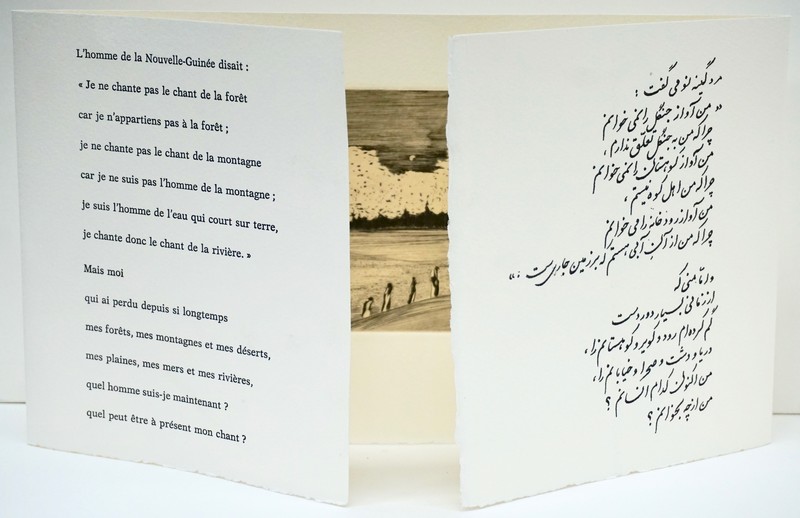 L'homme de la Nouvelle-Guinée disait :
« Je ne chante pas le chant de la forêt
car je n'appartiens pas à la forêt ;
je ne chante pas le chant de la montagne
car je ne suis pas l'homme de la montagne ;
je suis l'homme de l'eau qui court sur terre,
je chante donc le chant de la rivière. »
Mais moi
qui ai perdu depuis si longtemps
mes forêts, mes montagnes et mes déserts,
mes plaines, mes mers et mes rivières,
quel homme suis-je maintenant ?
quel peut être à présent mon chant ?
مرد گینه نو می گفت :
« من آواز جنگل را نمی خوانم
چرا که من به جنگل تعلّق ندارم ،
من آواز کوهستان را نمی خوانم
چرا که من اهل کوه نیستم ،
من آواز رودخانه را می خوانم
چرا که من از آن آبی هستم که بر زمین جاری ست . »
و امّا منی که
از زمانی بسیار دور دست
گم کرده ام رود و کویر و کوهستانم را ،
دریا و دشت و صحرا و خیابانم را ،
من اکنون کدام انسانم ؟
من از چه بخوانم ؟